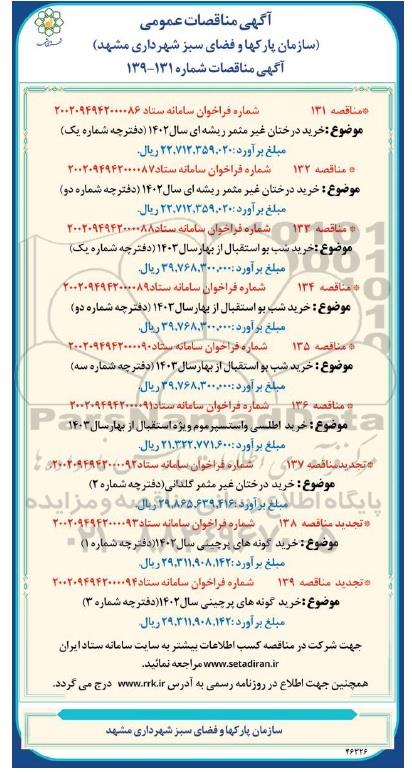 آگهی مناقصات عمومی
(سازمان پارکها و فضای سبز شهرداری مشهد)
آگهی مناقصات شماره ۱۳۱-۱۳۹
*مناقصه ۱۳۱ شماره فراخوان سامانه ستاد ۲۰۰۲۰۹۴۹۴۲۰۰۰۰۸۶
موضوع:خرید درختان غیر مثمر ریشه ای سال۱۴۰۲ (دفترچه شماره یک)
مبلغ برآورد:۲۲,۷۱۲,۳۵۹,۰۲۰ ریال.
* مناقصه ۱۳۲ شماره فراخوان سامانه ستاد۲۰۰۲۰۹۴۹۴۲۰۰۰۰۸۷
موضوع: خرید درختان غیر مثمر ریشه ای سال۱۴۰۲ (دفترچه شماره دو)
مبلغ برآورد:۲۲,۷۱۲,۳۵۹,۰۲۰ ریال.
* مناقصه ۱۳۳ شماره فراخوان سامانه ستاد۲۰۰۲۰۹۴۹۴۲۰۰۰۰۸۸
موضوع:خرید شب بو استقبال از بهارسال۱۴۰۳ (دفترچه شماره یک)
مبلغ برآورد:۳۹,۷۶۸,۳۰۰,۰۰۰ ریال.
* مناقصه ۱۳۴ شماره فراخوان سامانه ستاد۲۰۰۲۰۹۴۹۴۲۰۰۰۰۸۹
موضوع: خرید شب بو استقبال از بهارسال۱۴۰۳ (دفترچه شماره دو)
مبلغ برآورد:۳۹,۷۶۸,۳۰۰,۰۰۰ ریال.
* مناقصه ۱۳۵ شماره فراخوان سامانه ستاد۲۰۰۲۰۹۴۹۴۲۰۰۰۰۹۰
موضوع: خرید شب بو استقبال از بهارسال۱۴۰۳ (دفترچه شماره سه)
مبلغ برآورد:۳۹,۷۶۸,۳۰۰,۰۰۰ ریال.
* مناقصه ۱۳۶ شماره فراخوان سامانه ستاد۲۰۰۲۰۹۴۹۴۲۰۰۰۰۹۱
موضوع: خرید اطلسی واستسپرموم ویژه استقبال از بهارسال۱۴۰۳
مبلغ برآورد:۲۱,۳۲۲,۷۷۱,۶۰۰ ریال.
*تجدیدمناقصه ۱۳۷ شماره فراخوان سامانه ستاد۲۰۰۲۰۹۴۹۴۲۰۰۰۰۹۲
موضوع: خرید درختان غیر مثمر گلدانی(دفترچه شماره ۲)
مبلغ برآورد:۲۹,۸۶۵,۶۳۹,۴۱۶ ریال.
*تجدید مناقصه ۱۳۸ شماره فراخوان سامانه ستاد۲۰۰۲۰۹۴۹۴۲۰۰۰۰۹۳
موضوع: خرید گونه های پرچینی سال۱۴۰۲(دفترچه شماره ۱)
مبلغ برآورد:۲۹,۳۱۱,۹۰۸,۱۴۲ ریال.
*تجدید مناقصه ۱۳۹ شماره فراخوان سامانه ستاد۲۰۰۲۰۹۴۹۴۲۰۰۰۰۹۴
موضوع: خرید گونه های پرچینی سال۱۴۰۲(دفترچه شماره ۳)
مبلغ برآورد:۲۹,۳۱۱,۹۰۸,۱۴۲ ریال.
جهت شرکت در مناقصه کسب اطلاعات بیشتر به سایت سامانه ستاد ایران
www.setadiran.ir مراجعه نمائید.
همچنین جهت اطلاع در روزنامه رسمی به آدرس www.rrk.ir درج می گردد.
سازمان پارکها و فضای سبز شهرداری مشهد
۴۶۳۲۶